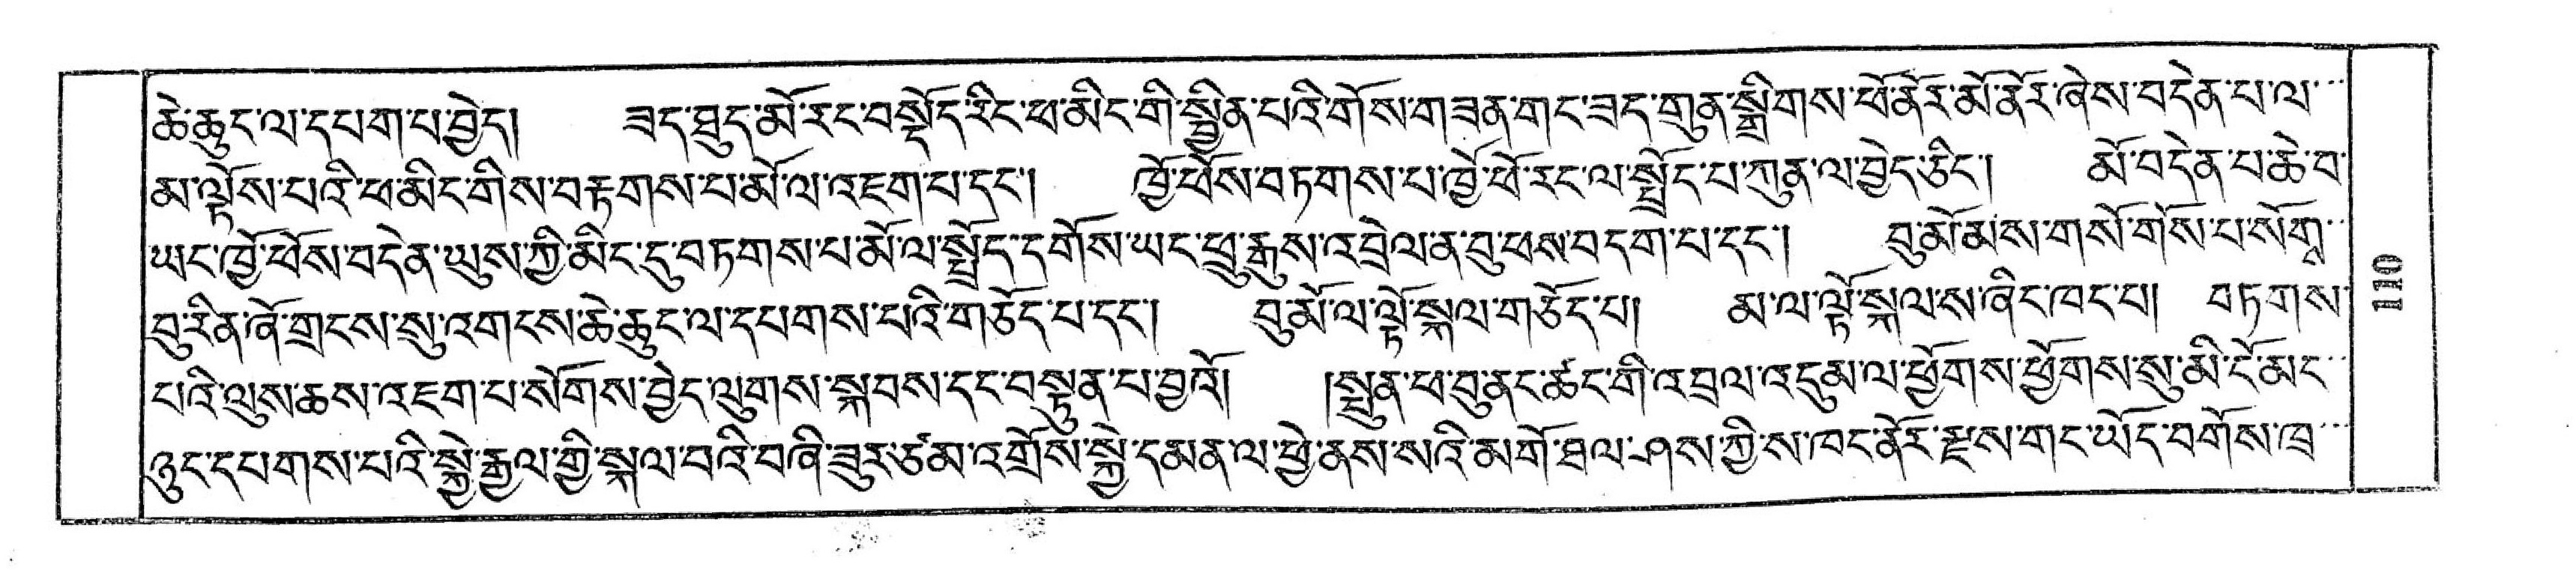 ཆེ་ཆུང་ལ་དཔག་པ་བྱེད། ཟད་ཐུད་མོ་རང་བསྡོད་རིང་ཕ་མིང་གི་སྦྱིན་པའི་གོས་གཟན་གང་ཟད་གྲུན་སྒྲིགས་ཕོ་ནོར་མོ་ནོར་ཞེས་བདེན་པ་ལ་
མ་ལྟོས་པའི་ཕ་མིང་གིས་བརྟགས་པ་མོ་ལ་འཇག་པ་དང་། ཁྱོ་ཕོས་བཏགས་པ་ཁྱོ་ཕོ་རང་ལ་སྤྲོད་པ་ཀུན་ལ་བྱེད་ཅིང་། མོ་བདེན་པ་ཆེ་བ་
ཡང་ཁྱོ་ཕོས་བདེན་ཡུས་ཀྱི་མིང་དུ་བཏགས་པ་མོ་ལ་སྤྲོད་དགོས་ཡང་ཕྲུ་རྒུས་འབྲེལ་ན་བུ་ཕས་བདག་པ་དང་། བུ་མོ་མས་གསོ་གོས་པ་སོགཱ
བུ་རིན་ཞོ་གྲངས་སུ་འགངས་ཆེ་ཆུང་ལ་དཔགས་པའི་གཅོད་པ་དང་། བུ་མོ་ལ་ལྟོ་སྐལ་གཅོད་པ། མ་ལ་ལྟོ་སྐལ་ས་ཞིང་ཁང་པ། བཏགས་
པའི་ལུས་ཆས་འཇག་པ་སོགས་བྱེད་ལུགས་སྐབས་དང་བསྟུན་པ་བྱའོ། །སྤུན་ཕ་བུ་ནང་ཚང་གི་འབྲལ་འདུམ་ལ་ཕྱོགས་ཕྱོགས་སུ་མི་ངོ་མང་
ཉུང་དཔགས་པའི་སྐྱེ་རྒྱལ་གྱི་སྐལ་བའི་བཞི་ཟུར་ཙམ་འགྲོས་སྐྱེ་དམན་ལ་ཕྱེ་ནས་སའི་མགོ་ཐལ་ཤས་ཀྱི་ས་ཁང་ནོར་རྫས་གང་ཡོད་བགོས་ཁྲ